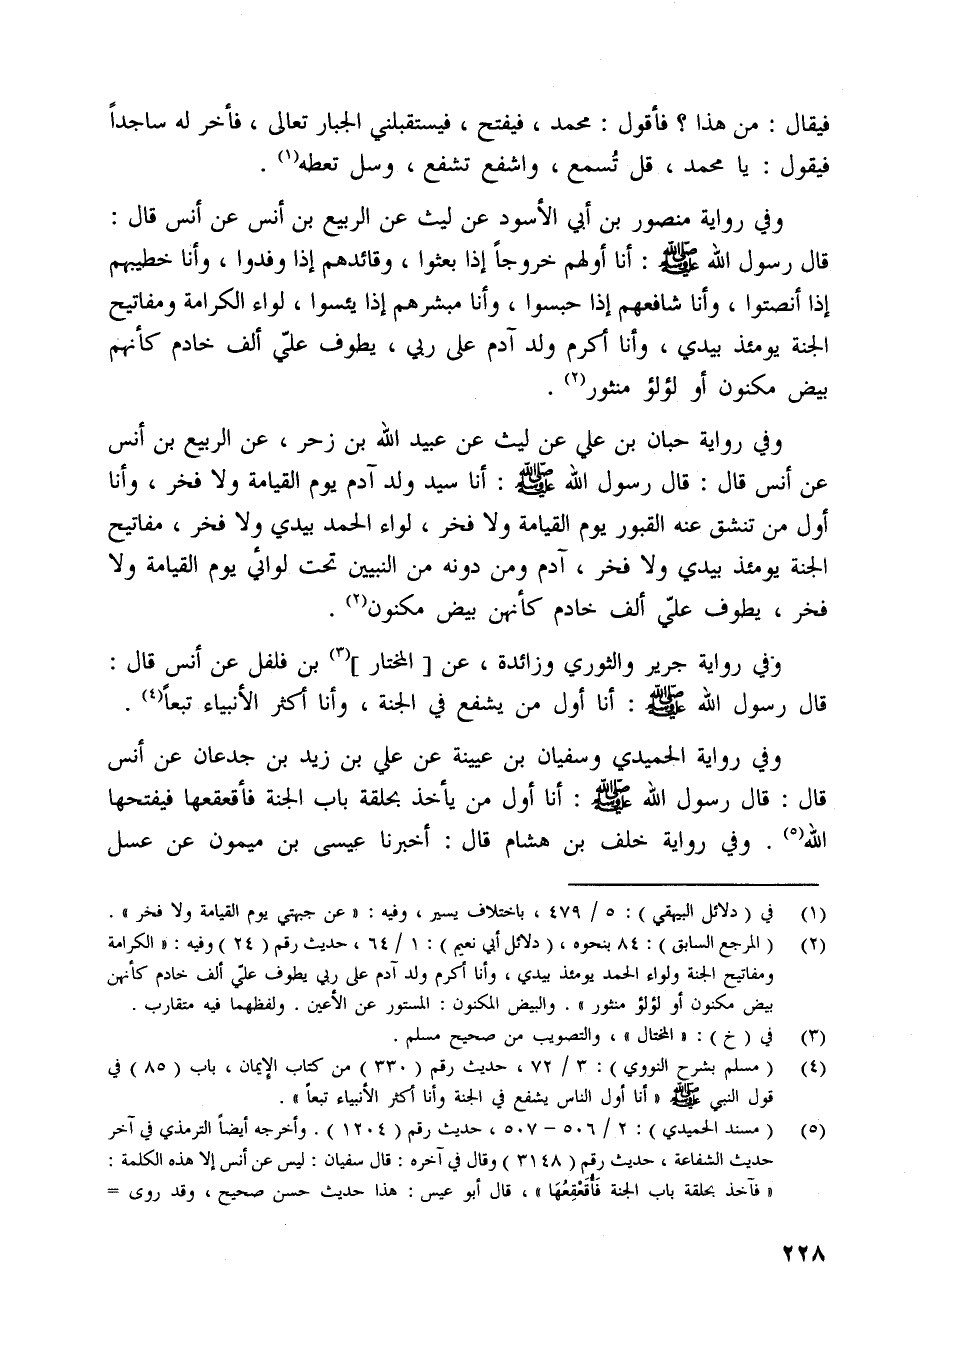 فيقال : من هذا ؟ فأقول : محمد ، فيفتح ، فيستقبلني الجبار تعالى ، فأخر له ساجداً
فيقول : يا محمد ، قل تُسمع ، واشفع تشفع ، وسل تعطه(١) .
وفي رواية منصور بن أبي الأسود عن ليث عن الربيع بن أنس عن أنس قال :
قال رسول الله ﷺ : أنا أولهم خروجاً إذا بعثوا ، وقائدهم إذا وفدوا ، وأنا خطيبهم
إذا أنصتوا ، وأنا شافعهم إذا حبسوا ، وأنا مبشرهم إذا يئسوا ، لواء الكرامة ومفاتيح
الجنة يومئذ بيدي ، وأنا أكرم ولد آدم على ربي ، يطوف عليّ ألف خادم كأنهم
بيض مكنون أو لؤلؤ منثور(٢) .
وفي رواية حبان بن علي عن ليث عن عبيد الله بن زحر ، عن الربيع بن أنس
عن أنس قال : قال رسول الله ﷺ : أنا سيد ولد آدم يوم القيامة ولا فخر ، وأنا
أول من تنشق عنه القبور يوم القيامة ولا فخر ، لواء الحمد بيدي ولا فخر ، مفاتيح
الجنة يومئذ بيدي ولا فخر ، آدم ومن دونه من النبيين تحت لوائي يوم القيامة ولا
فخر ، يطوف عليّ ألف خادم كأنهن بيض مكنون(٢) .
وفي رواية جرير والثوري وزائدة ، عن [ المختار ](٣) بن فلفل عن أنس قال :
قال رسول الله ﷺ : أنا أول من يشفع في الجنة ، وأنا أكثر الأنبياء تبعاً(٤) .
وفي رواية الحميدي وسفيان بن عيينة عن علي بن زيد بن جدعان عن أنس
قال : قال رسول الله ﷺ : أنا أول من يأخذ بحلقة باب الجنة فأقعقعها فيفتحها
الله(٥) . وفي رواية خلف بن هشام قال : أخبرنا عيسى بن ميمون عن عسل
(١) في ( دلائل البيهقي ) : ٥ / ٤٧٩ ، باختلاف يسير ، وفيه : « عن جبهتي يوم القيامة ولا فخر » .
(٢) ( المرجع السابق ) : ٨٤ بنحوه ، ( دلائل أبي نعيم ) : ١ / ٦٤ ، حديث رقم ( ٢٤ ) وفيه : « الكرامة
ومفاتيح الجنة ولواء الحمد يومئذ بيدي ، وأنا أكرم ولد آدم على ربي يطوف عليّ ألف خادم كأنهن
بيض مكنون أو لؤلؤ منثور » . والبيض المكنون : المستور عن الأعين . ولفظهما فيه متقارب .
(٣) في ( خ ) : « المختال » ، والتصويب من صحيح مسلم .
(٤) ( مسلم بشرح النووي ) : ٣ / ٧٢ ، حديث رقم ( ٣٣٠ ) من كتاب الإيمان ، باب ( ٨٥ ) في
قول النبي ﷺ « أنا أول الناس يشفع في الجنة وأنا أكثر الأنبياء تبعاً » .
(٥) ( مسند الحميدي ) : ٢ / ٥٠٦ – ٥٠٧ ، حديث رقم ( ١٢٠٤ ) . وأخرجه أيضاً الترمذي في آخر
حديث الشفاعة ، حديث رقم ( ٣١٤٨ ) وقال في آخره : قال سفيان : ليس عن أنس إلا هذه الكلمة :
« فآخذ بحلقة باب الجنة فَأُقَعْقِعُهَا » ، قال أبو عيس : هذا حديث حسن صحيح ، وقد روى =
٢٢٨